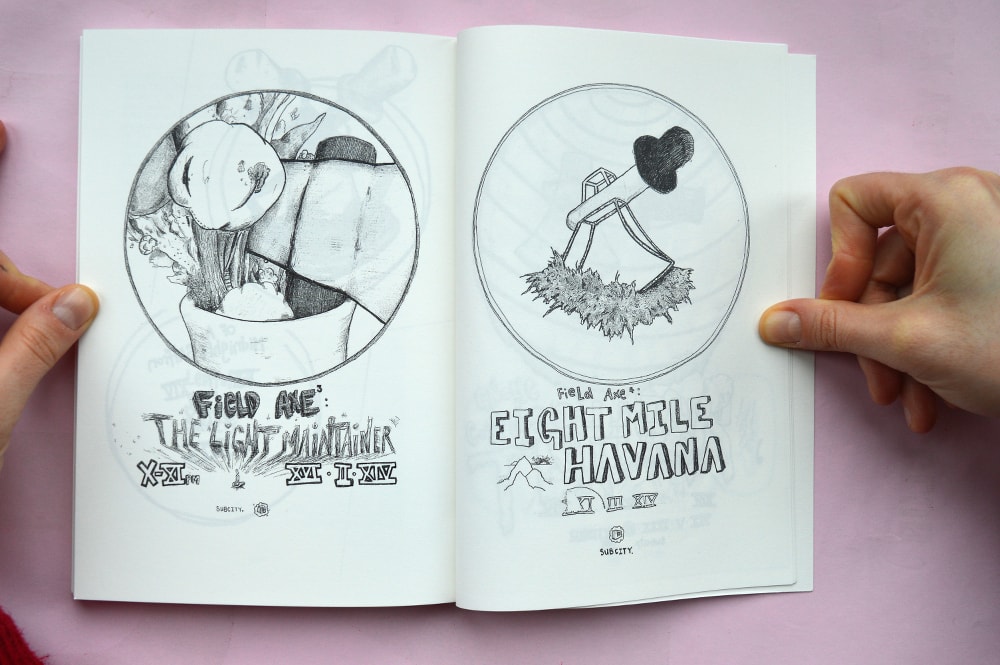 FIELD AXE³:
THE LIGHT MAINTAINER
X-XI PM XVI · II · XIV
SUBCITY.
Field Axe⁴:
EIGHT MILE
HAVANA
VI III XIV
SUBCITY.